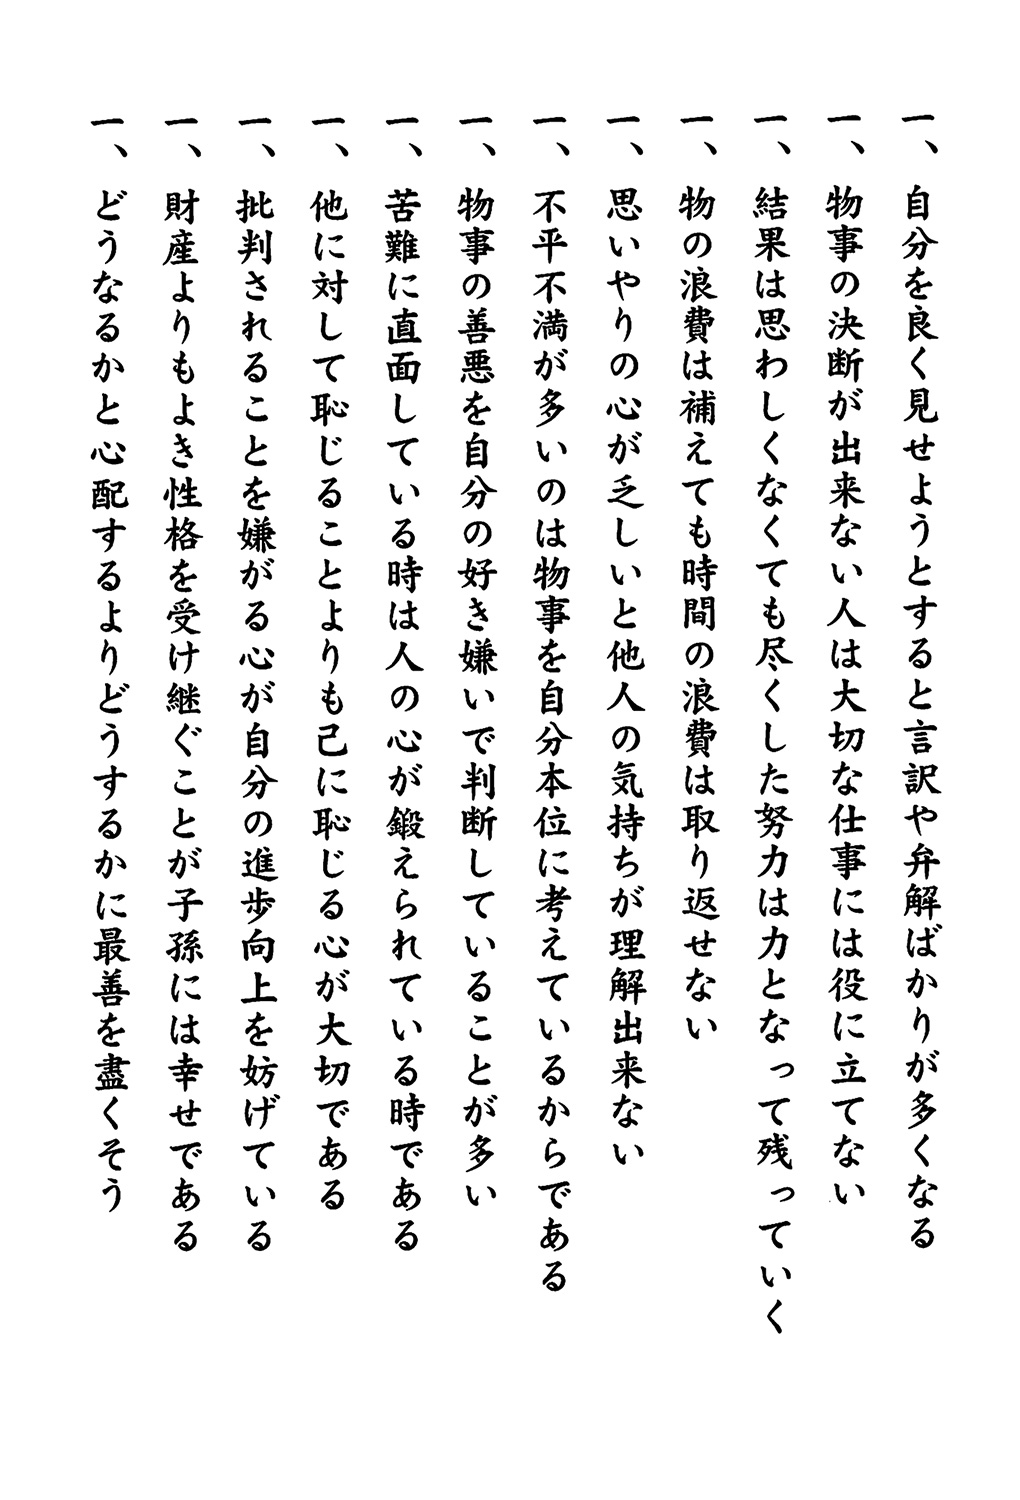 一、自分を良く見せようとすると言訳や弁解ばかりが多くなる
一、物事の決断が出来ない人は大切な仕事には役に立てない
一、結果は思わしくなくても尽くした努力は力となって残っていく
一、物の浪費は補えても時間の浪費は取り返せない
一、思いやりの心が乏しいと他人の気持ちが理解出来ない
一、不平不満が多いのは物事を自分本位に考えているからである
一、物事の善悪を自分の好き嫌いで判断していることが多い
一、苦難に直面している時は人の心が鍛えられている時である
一、他に対して恥じることよりも己に恥じる心が大切である
一、批判されることを嫌がる心が自分の進歩向上を妨げている
一、財産よりもよき性格を受け継ぐことが子孫には幸せである
一、どうなるかと心配するよりどうするかに最善を盡くそう